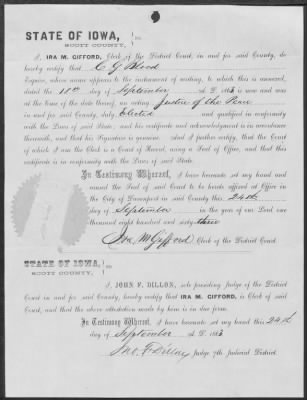 STATE OF IOWA, } ss.
SCOTT COUNTY,
I, IRA M. GIFFORD, Clerk of the District Court, in and for said County, do
hereby certify that C G Blood
Esquire, whose name appears to the instrument of writing, to which this is annexed,
dated the 18th day of September A. D. 1863 is now and was
at the time of the date thereof, an acting Justice of the Peace
in and for said County, duly Elected and qualified in conformity
with the Laws of said State, and his certificate and acknowledgment is in accordance
therewith, and that his Signature is genuine. And I further certify, that the Court
of which I am the Clerk is a Court of Record, using a Seal of Office, and that this
certificate is in conformity with the Laws of said State.
In Testimony Whereof, I have hereunto set my hand and
annexed the Seal of said Court to be hereto affixed at Office in
the City of Davenport in said County this 24th
day of September in the year of our Lord one
thousand eight hundred and sixty-three
Ira M Gifford Clerk of the District Court.
STATE OF IOWA, } ss.
SCOTT COUNTY,
I, JOHN F. DILLON, sole presiding Judge of the District
Court in and for said County, hereby certify that IRA M. GIFFORD, is Clerk of said
Court, and that the above attestation made by him is in due form.
In Testimony Whereof, I have hereunto set my hand this 24th
day of September A. D. 1863
Jno. F. Dillon Judge 7th Judicial District.